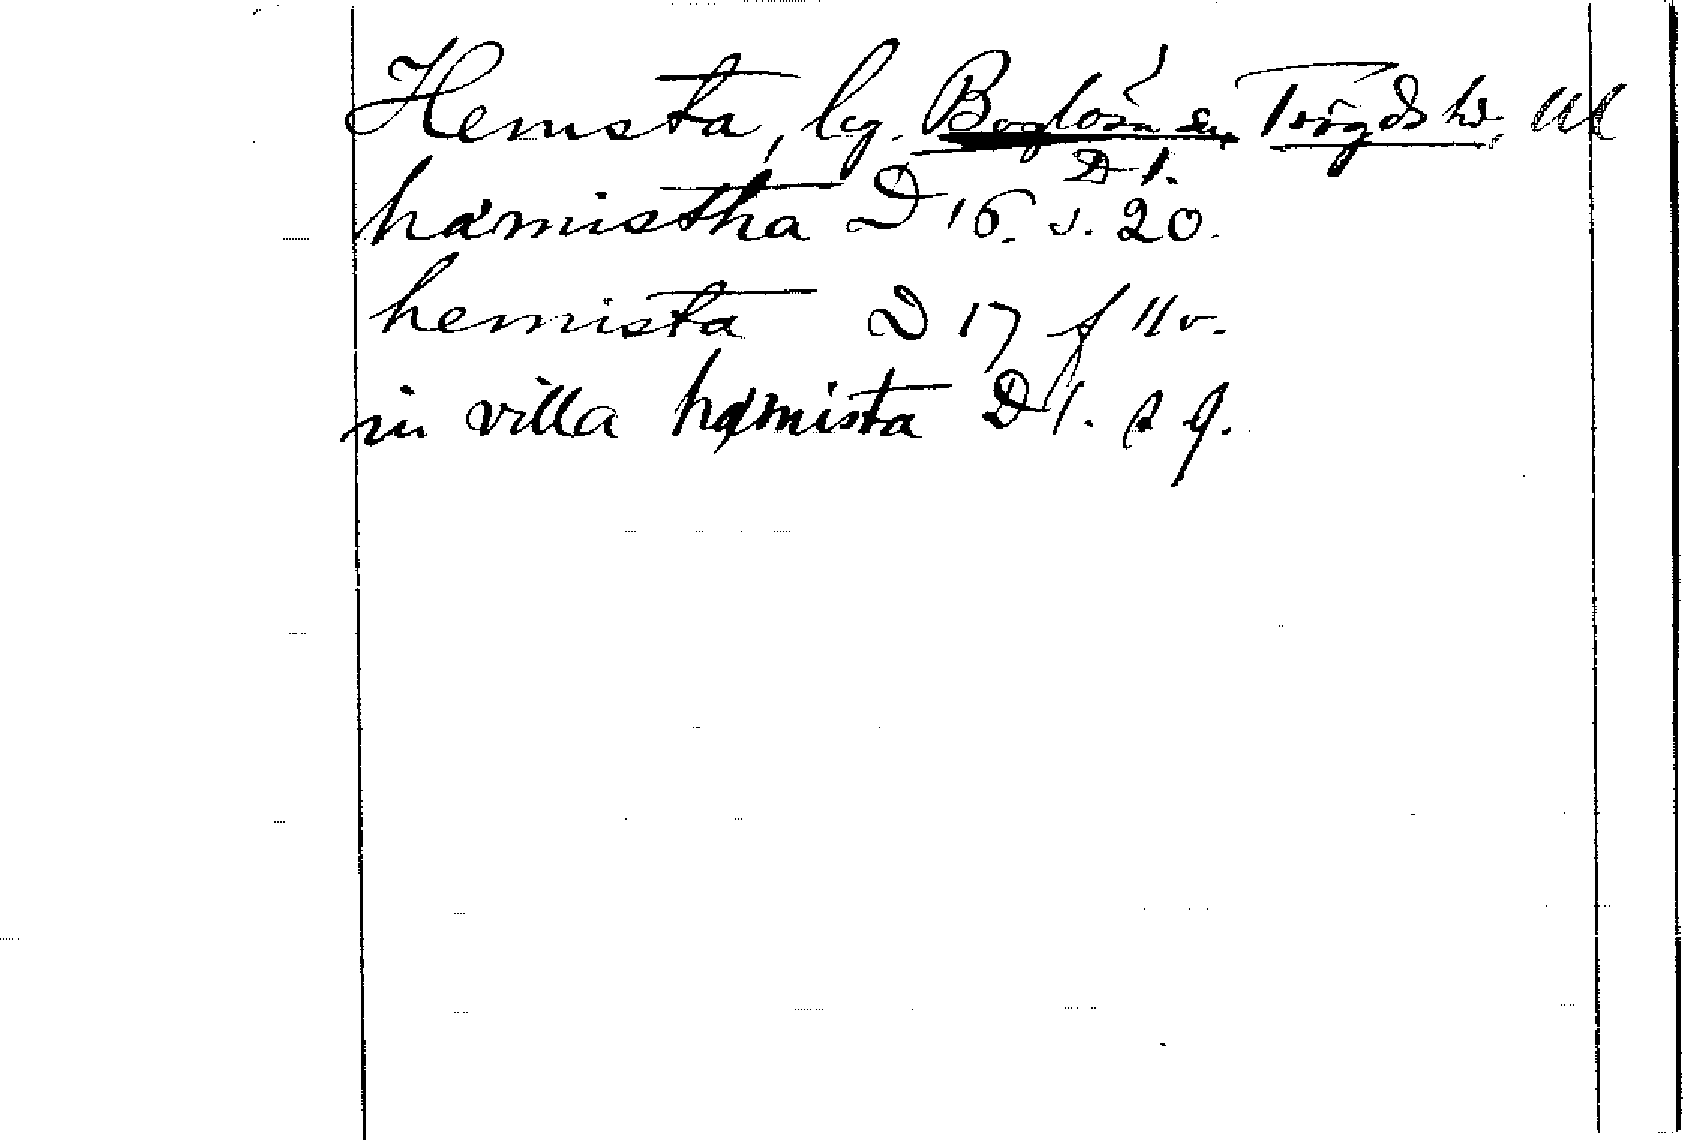 Hemsta, by. Boglösa sn, Trögds hd. Ul
D 1.
hæmistha D 16. s. 20.
hemista D 17 f 11 v.
in villa hæmista D 1. s 9.